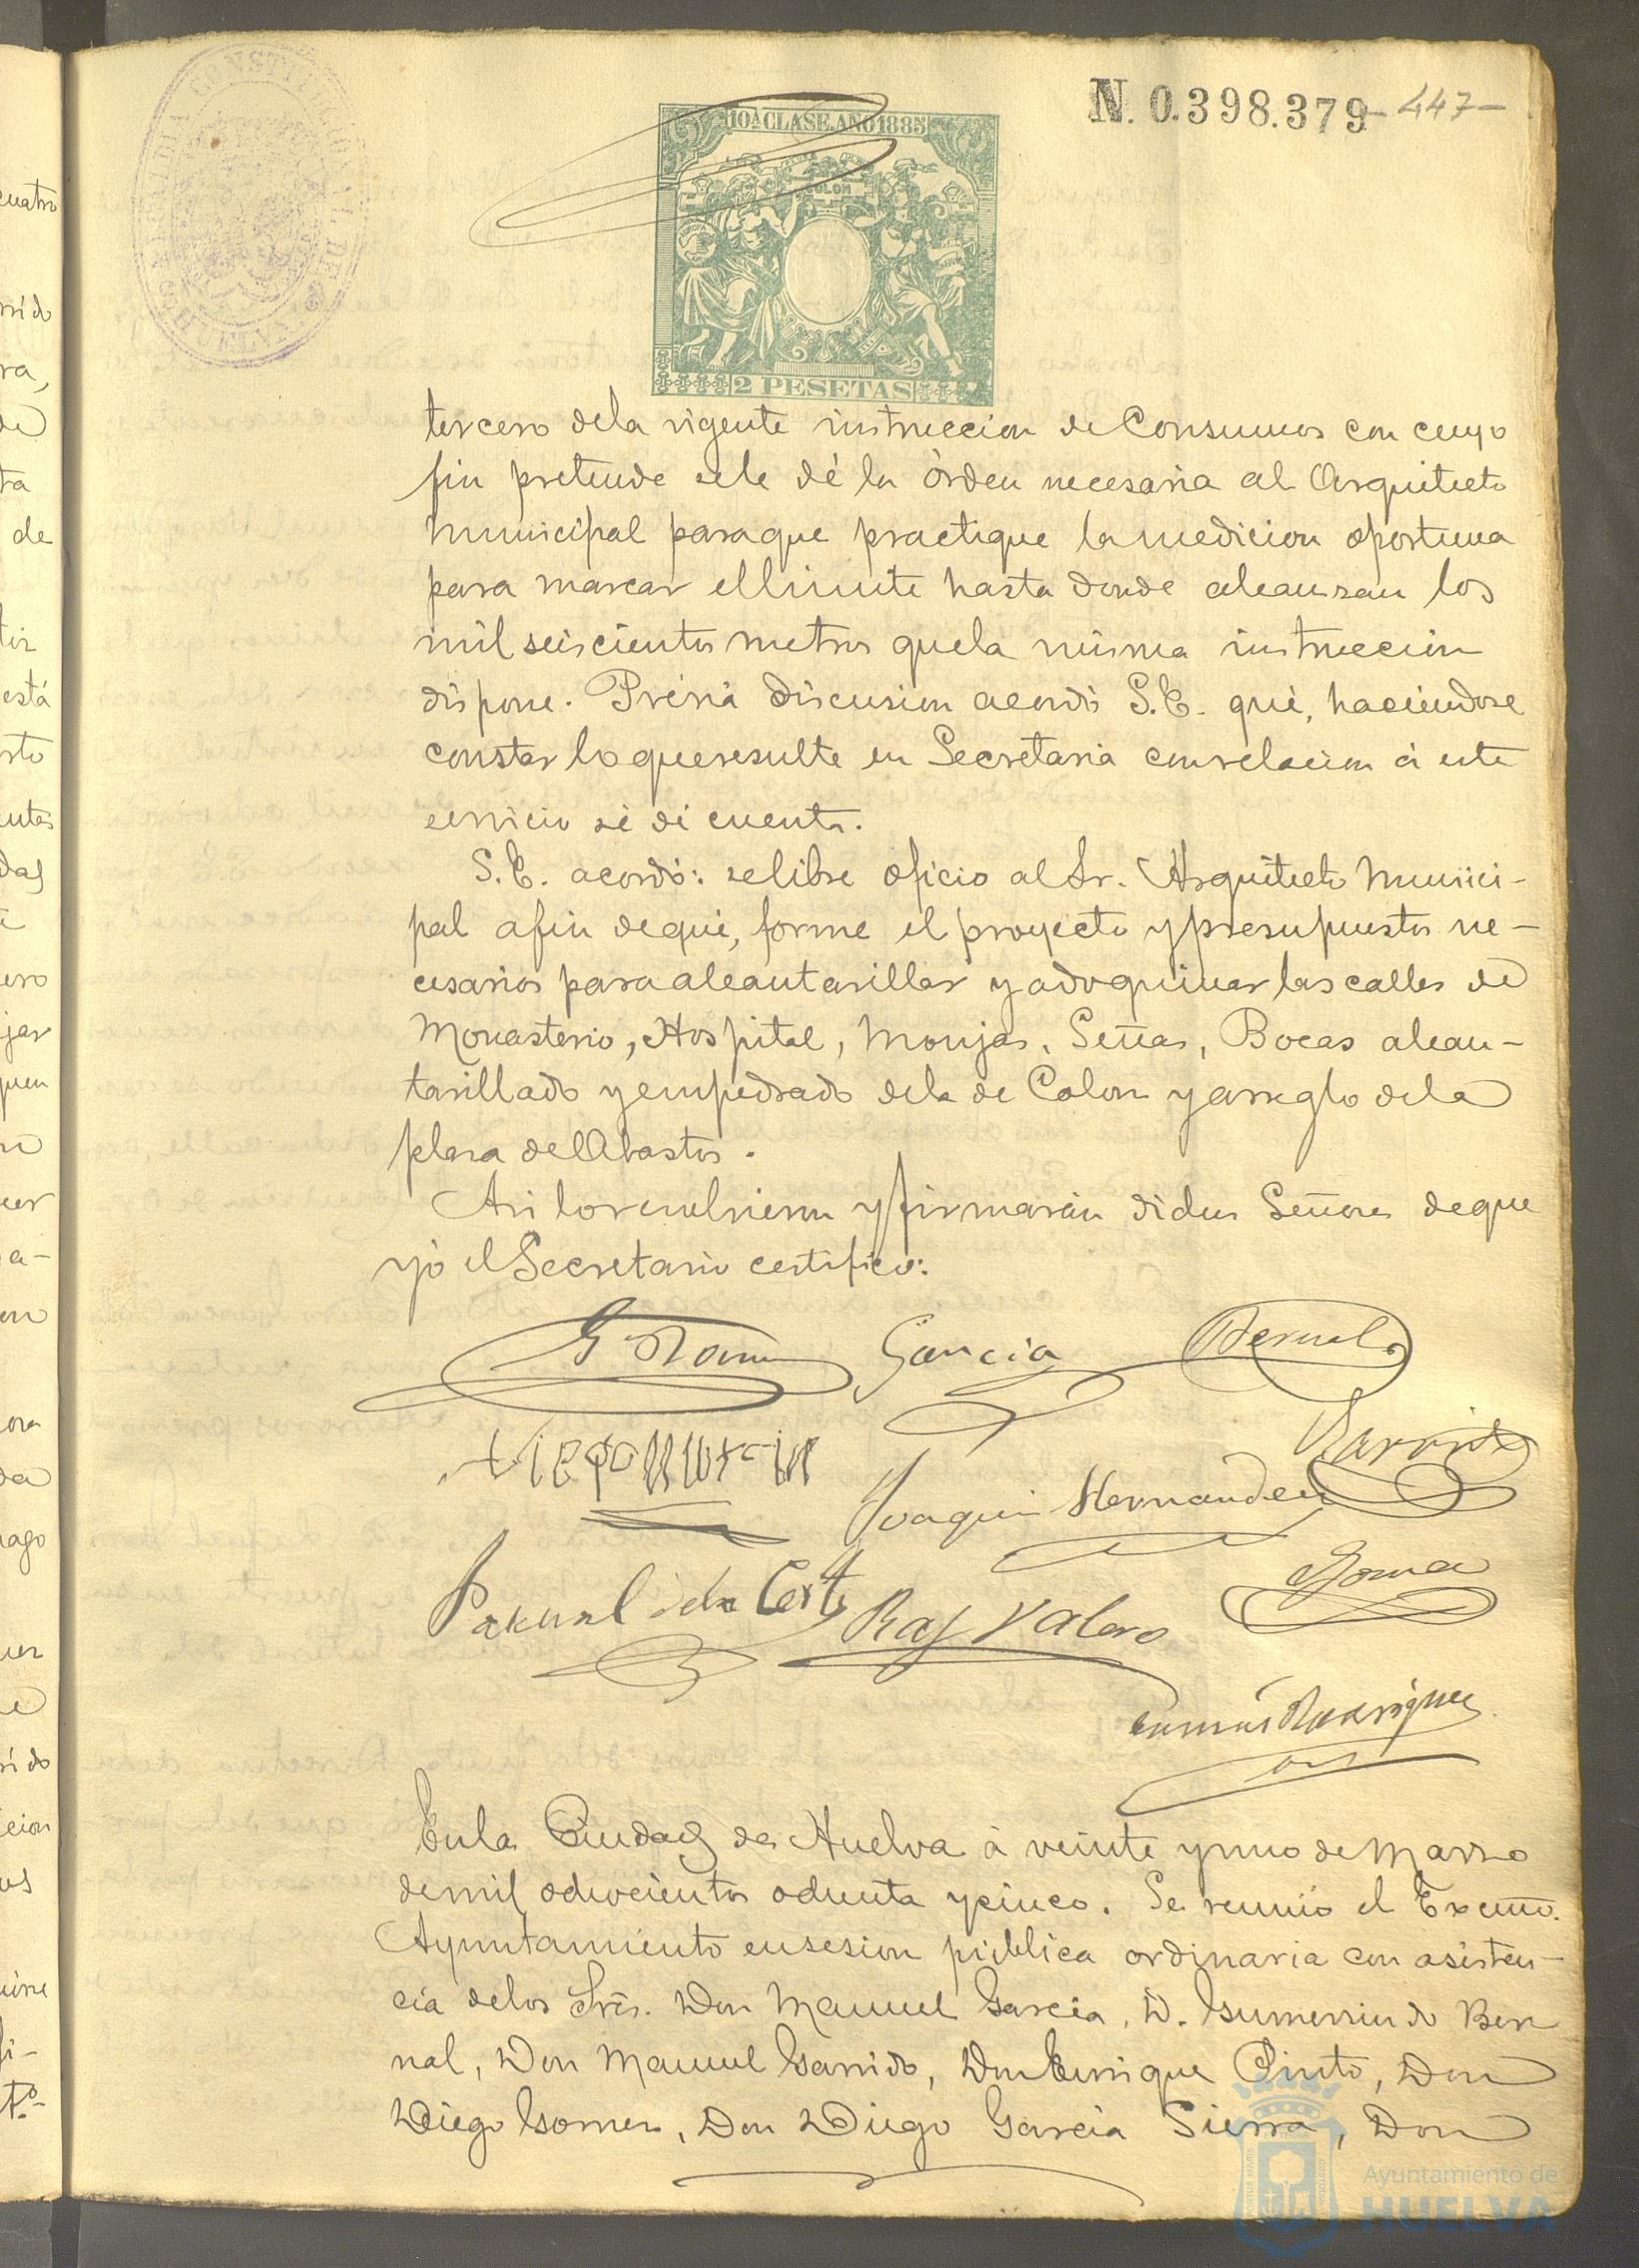 N. 0.398.379 - 447 -
ALCALDIA CONSTITUCIONAL DE HUELVA
10ª CLASE. AÑO 1885
COLON
2 PESETAS
tercero dela vigente instruccion de Consumos con cuyo
fin pretende sele dé la órden necesaria al Arquitecto
Municipal paraque practique la medicion oportuna
para marcar el limite hasta donde alcanzan los
mil seiscientos metros quela misma instruccion
dispone. Prévia discusion acordó S.E. que, haciendose
constar lo queresulte en Secretaria con relacion á este
servicio se dé cuenta.
S.E. acordó: selibre oficio al Sr. Arquitecto Munici-
pal afin deque, forme el proyecto y presupuestos ne-
cesarios para alcantarillar y adoquinar las calles de
Monasterio, Hospital, Monjas, Señas, Bocas alcan-
tarillado y empedrado dela de Colon y arreglo dela
plaza de Abastos.
Asi lo resolvieron y firmarán dichos Señores deque
yó el Secretario certifico:
García Bernal
Garrido
Joaquin Hernandez
Pascual de la Corte Raf Valero Gomez
Tomás Rodriguez
En la Ciudad de Huelva á veinte y uno de Marzo
demil ochocientos ochenta y cinco. Se reunió el Excmo.
Ayuntamiento en sesion pública ordinaria con asisten-
cia delos Sres. Don Manuel Garcia, D. Gumersindo Ber
nal, Don Manuel Garrido, Don Enrique Pinto, Don
Diego Gomez, Don Diego Garcia Sierra, Don
Ayuntamiento de
HUELVA